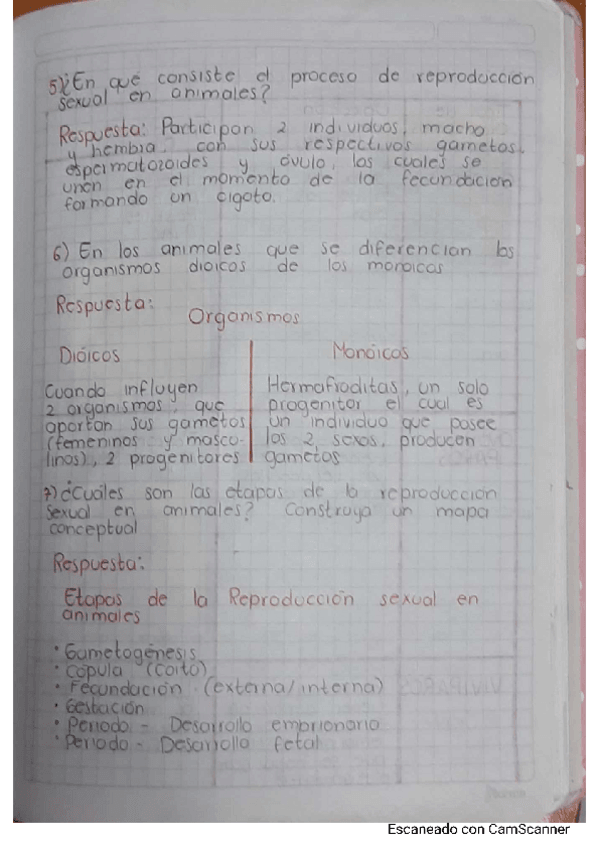 5) ¿En qué consiste el proceso de reproducción
sexual en animales?
Respuesta: Participan 2 individuos, macho
y hembra. con sus respectivos gametos.
espermatozoides y óvulo, los cuales se
unen en el momento de la fecundación
formando un cigoto.
6) En los animales que se diferencian los
organismos dioicos de los monoicos
Respuesta:
Organismos
Dióicos
Cuando influyen
2 organismos, que
aportan sus gametos
(femeninos y mascu-
linos), 2 progenitores
Monóicos
Hermafroditas, un solo
progenitor el cual es
un individuo que posee
los 2 sexos, producen
gametos
7) ¿Cuáles son las etapas de la reproducción
sexual en animales? Construya un mapa
conceptual
Respuesta:
Etapas de la Reproducción sexual en
animales
• Gametogénesis
• Cópula (coito)
• Fecundación (externa/interna)
• Gestación
• Periodo - Desarrollo embrionario
• Periodo - Desarrollo fetal
Escaneado con CamScanner